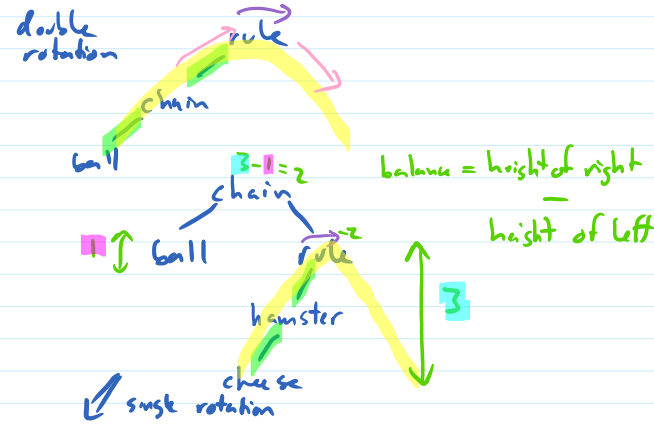 double
rotation
rule
chain
ball
3-1=2
chain
balance = height of right
-
height of left
1
ball
rule
-2
3
hamster
cheese
single rotation